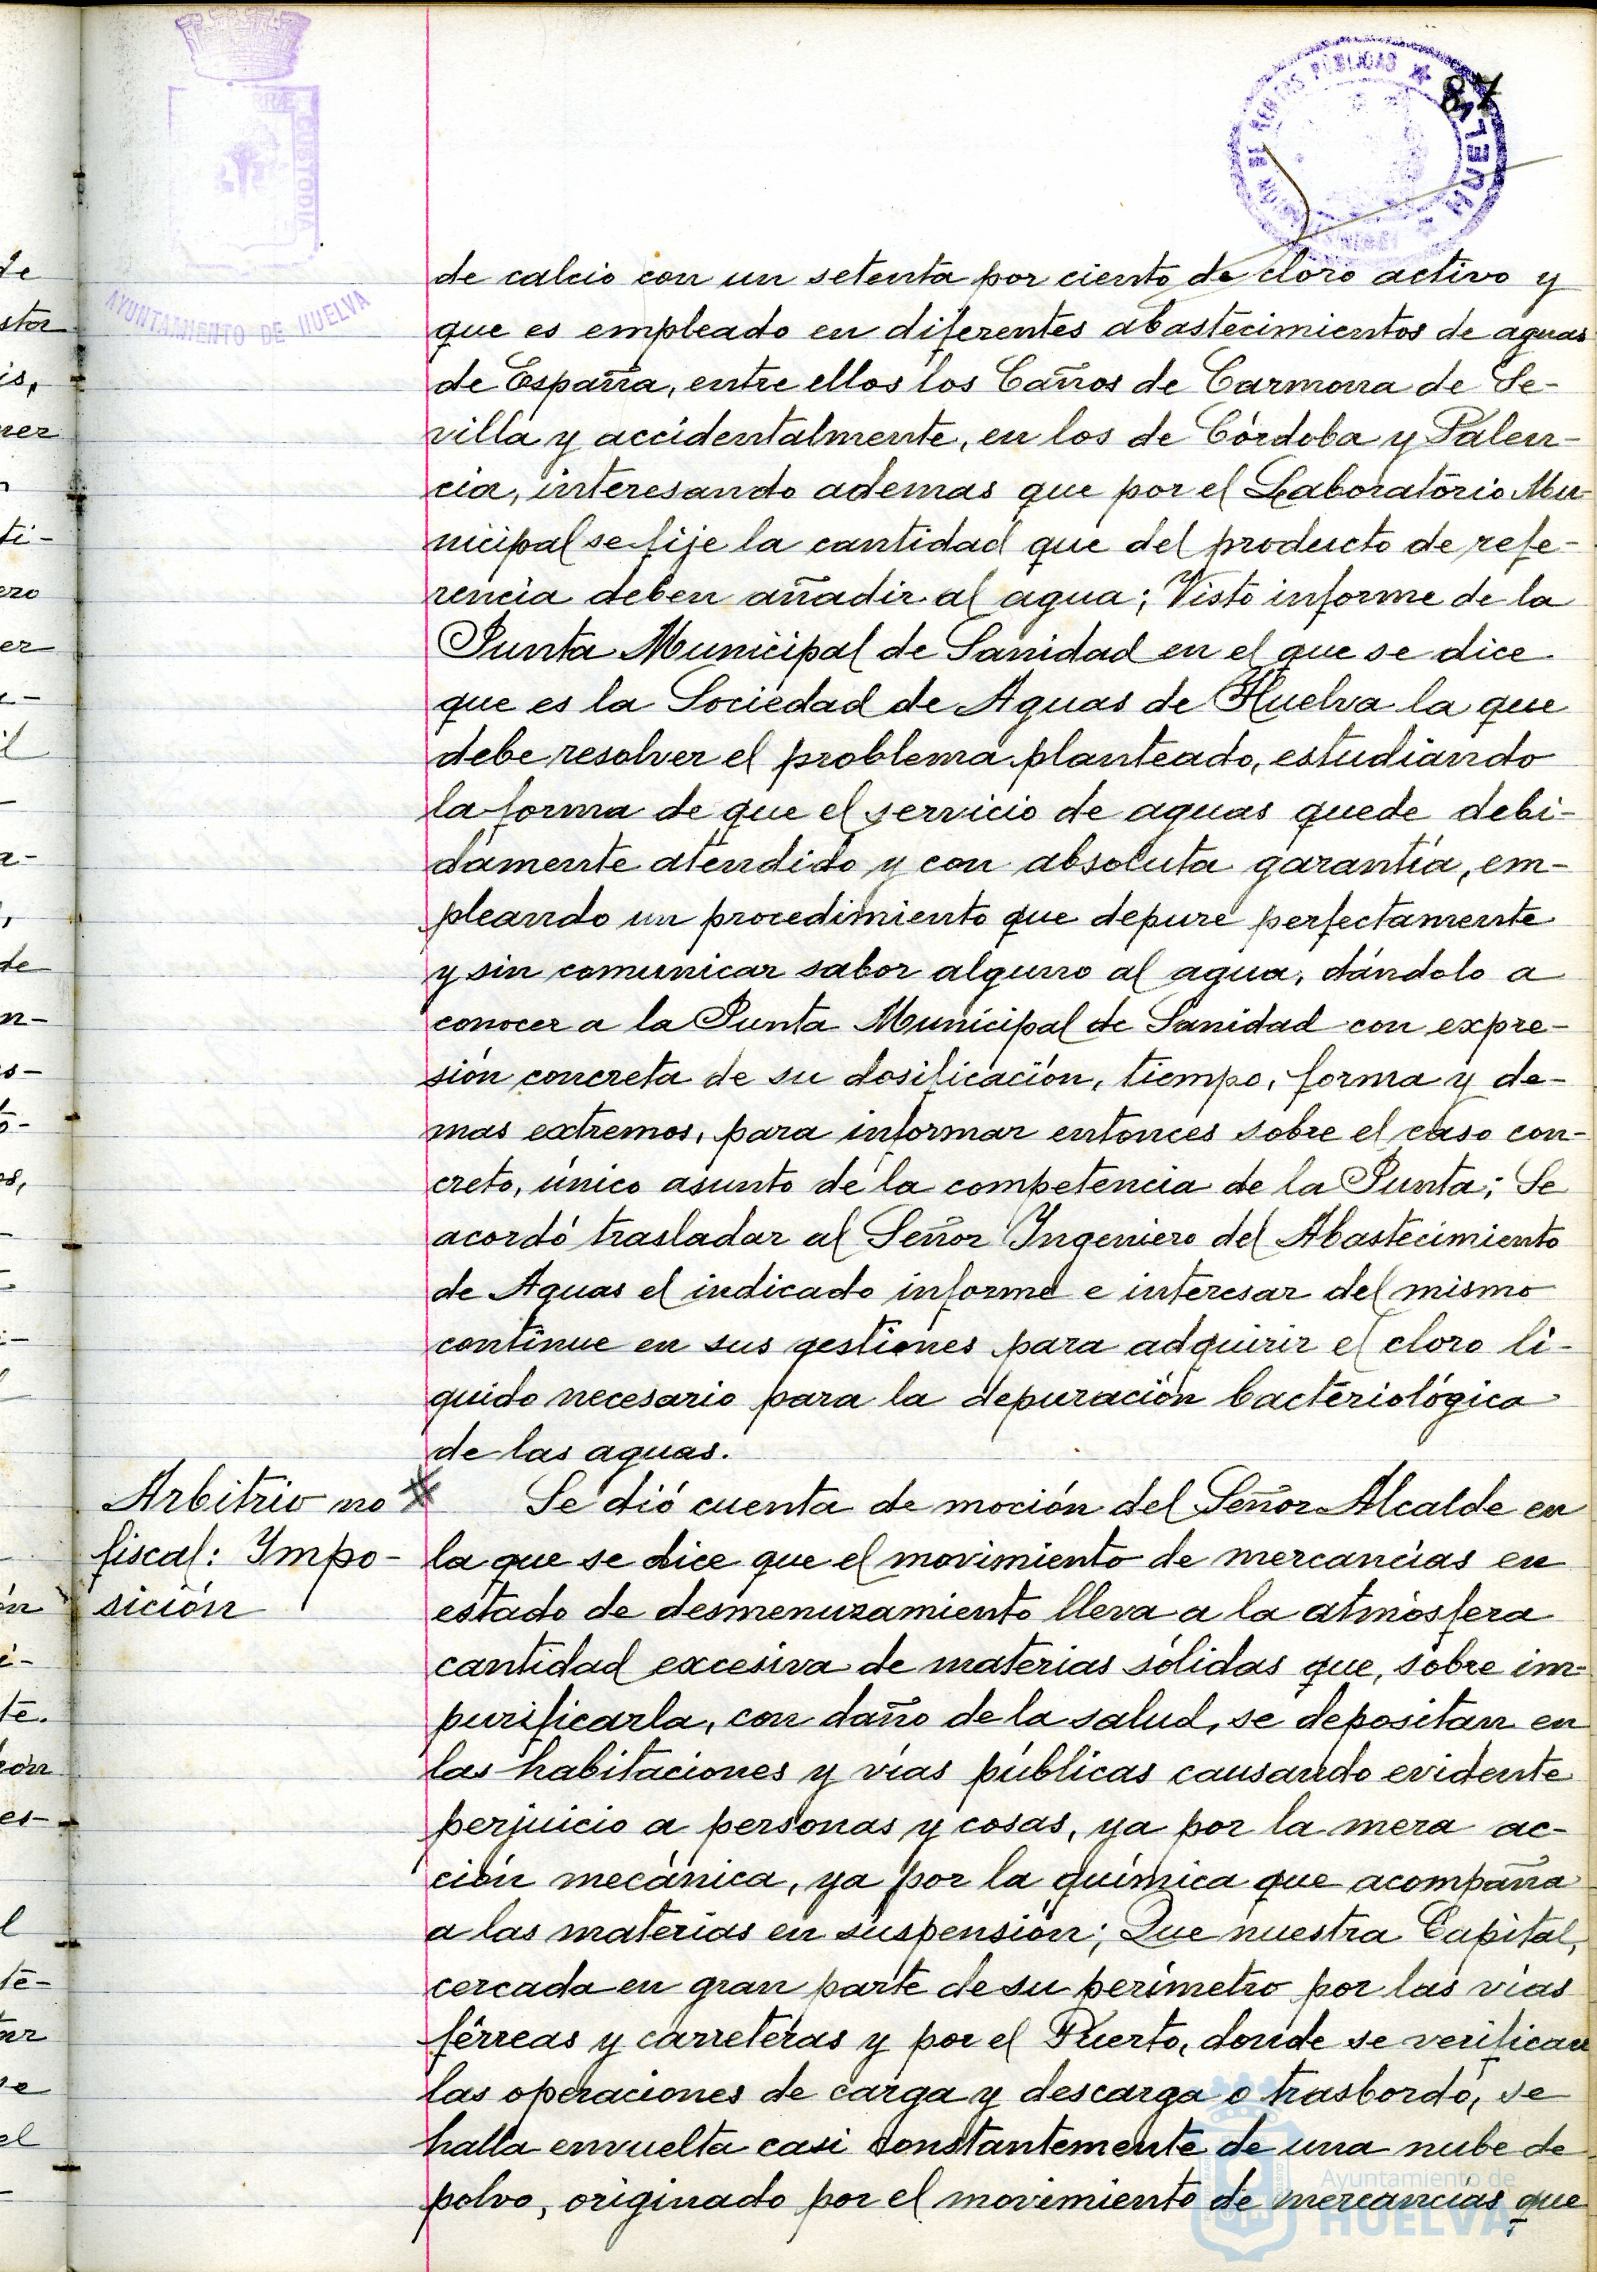 87
AYUNTAMIENTO DE HUELVA
HUEL
de calcio con un setenta por ciento de cloro activo y
que es empleado en diferentes abastecimientos de aguas
de España, entre ellos los Caños de Carmona de Se-
villa y accidentalmente, en los de Córdoba y Palen-
cia, interesando ademas que por el Laboratorio Mu-
nicipal se fije la cantidad que del producto de refe-
rencia deben añadir al agua; Visto informe de la
Junta Municipal de Sanidad en el que se dice
que es la Sociedad de Aguas de Huelva la que
debe resolver el problema planteado, estudiando
la forma de que el servicio de aguas quede debi-
damente atendido y con absoluta garantía, em-
pleando un procedimiento que depure perfectamente
y sin comunicar sabor alguno al agua, dándolo a
conocer a la Junta Municipal de Sanidad con expre-
sión concreta de su dosificación, tiempo, forma y de-
mas extremos, para informar entonces sobre el caso con-
creto, único asunto de la competencia de la Junta; Se
acordó trasladar al Señor Ingeniero del Abastecimiento
de Aguas el indicado informe e interesar del mismo
continue en sus gestiones para adquirir el cloro li-
quido necesario para la depuración bacteriológica
de las aguas.
Arbitrio no
fiscal: Impo-
sición
Se dió cuenta de moción del Señor Alcalde en
la que se dice que el movimiento de mercancías en
estado de desmenuzamiento lleva a la atmósfera
cantidad excesiva de materias sólidas que, sobre im-
purificarla, con daño de la salud, se depositan en
las habitaciones y vías públicas causando evidente
perjuicio a personas y cosas, ya por la mera ac-
ción mecánica, ya por la química que acompaña
a las materias en suspensión; Que nuestra Capital,
cercada en gran parte de su perímetro por las vías
férreas y carreteras y por el Puerto, donde se verifican
las operaciones de carga y descarga o trasbordo, se
halla envuelta casi constantemente de una nube de
polvo, originado por el movimiento de mercancías que
Ayuntamiento de
HUELVA